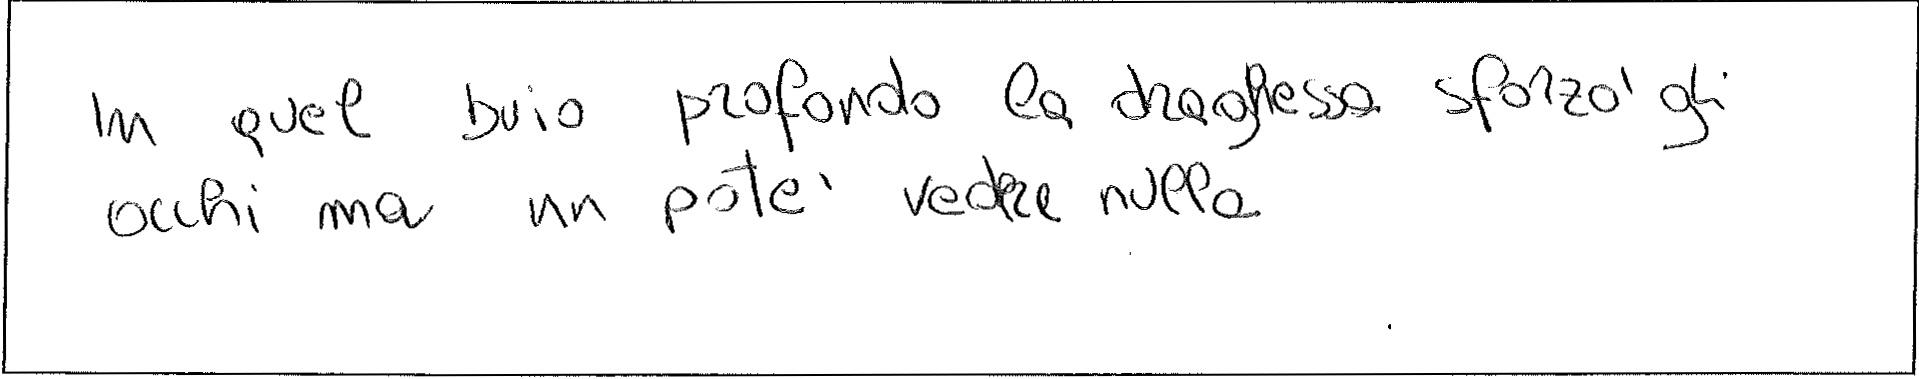 In quel buio profondo la draghessa sforzo' gli
occhi ma un pote' vedere nulla